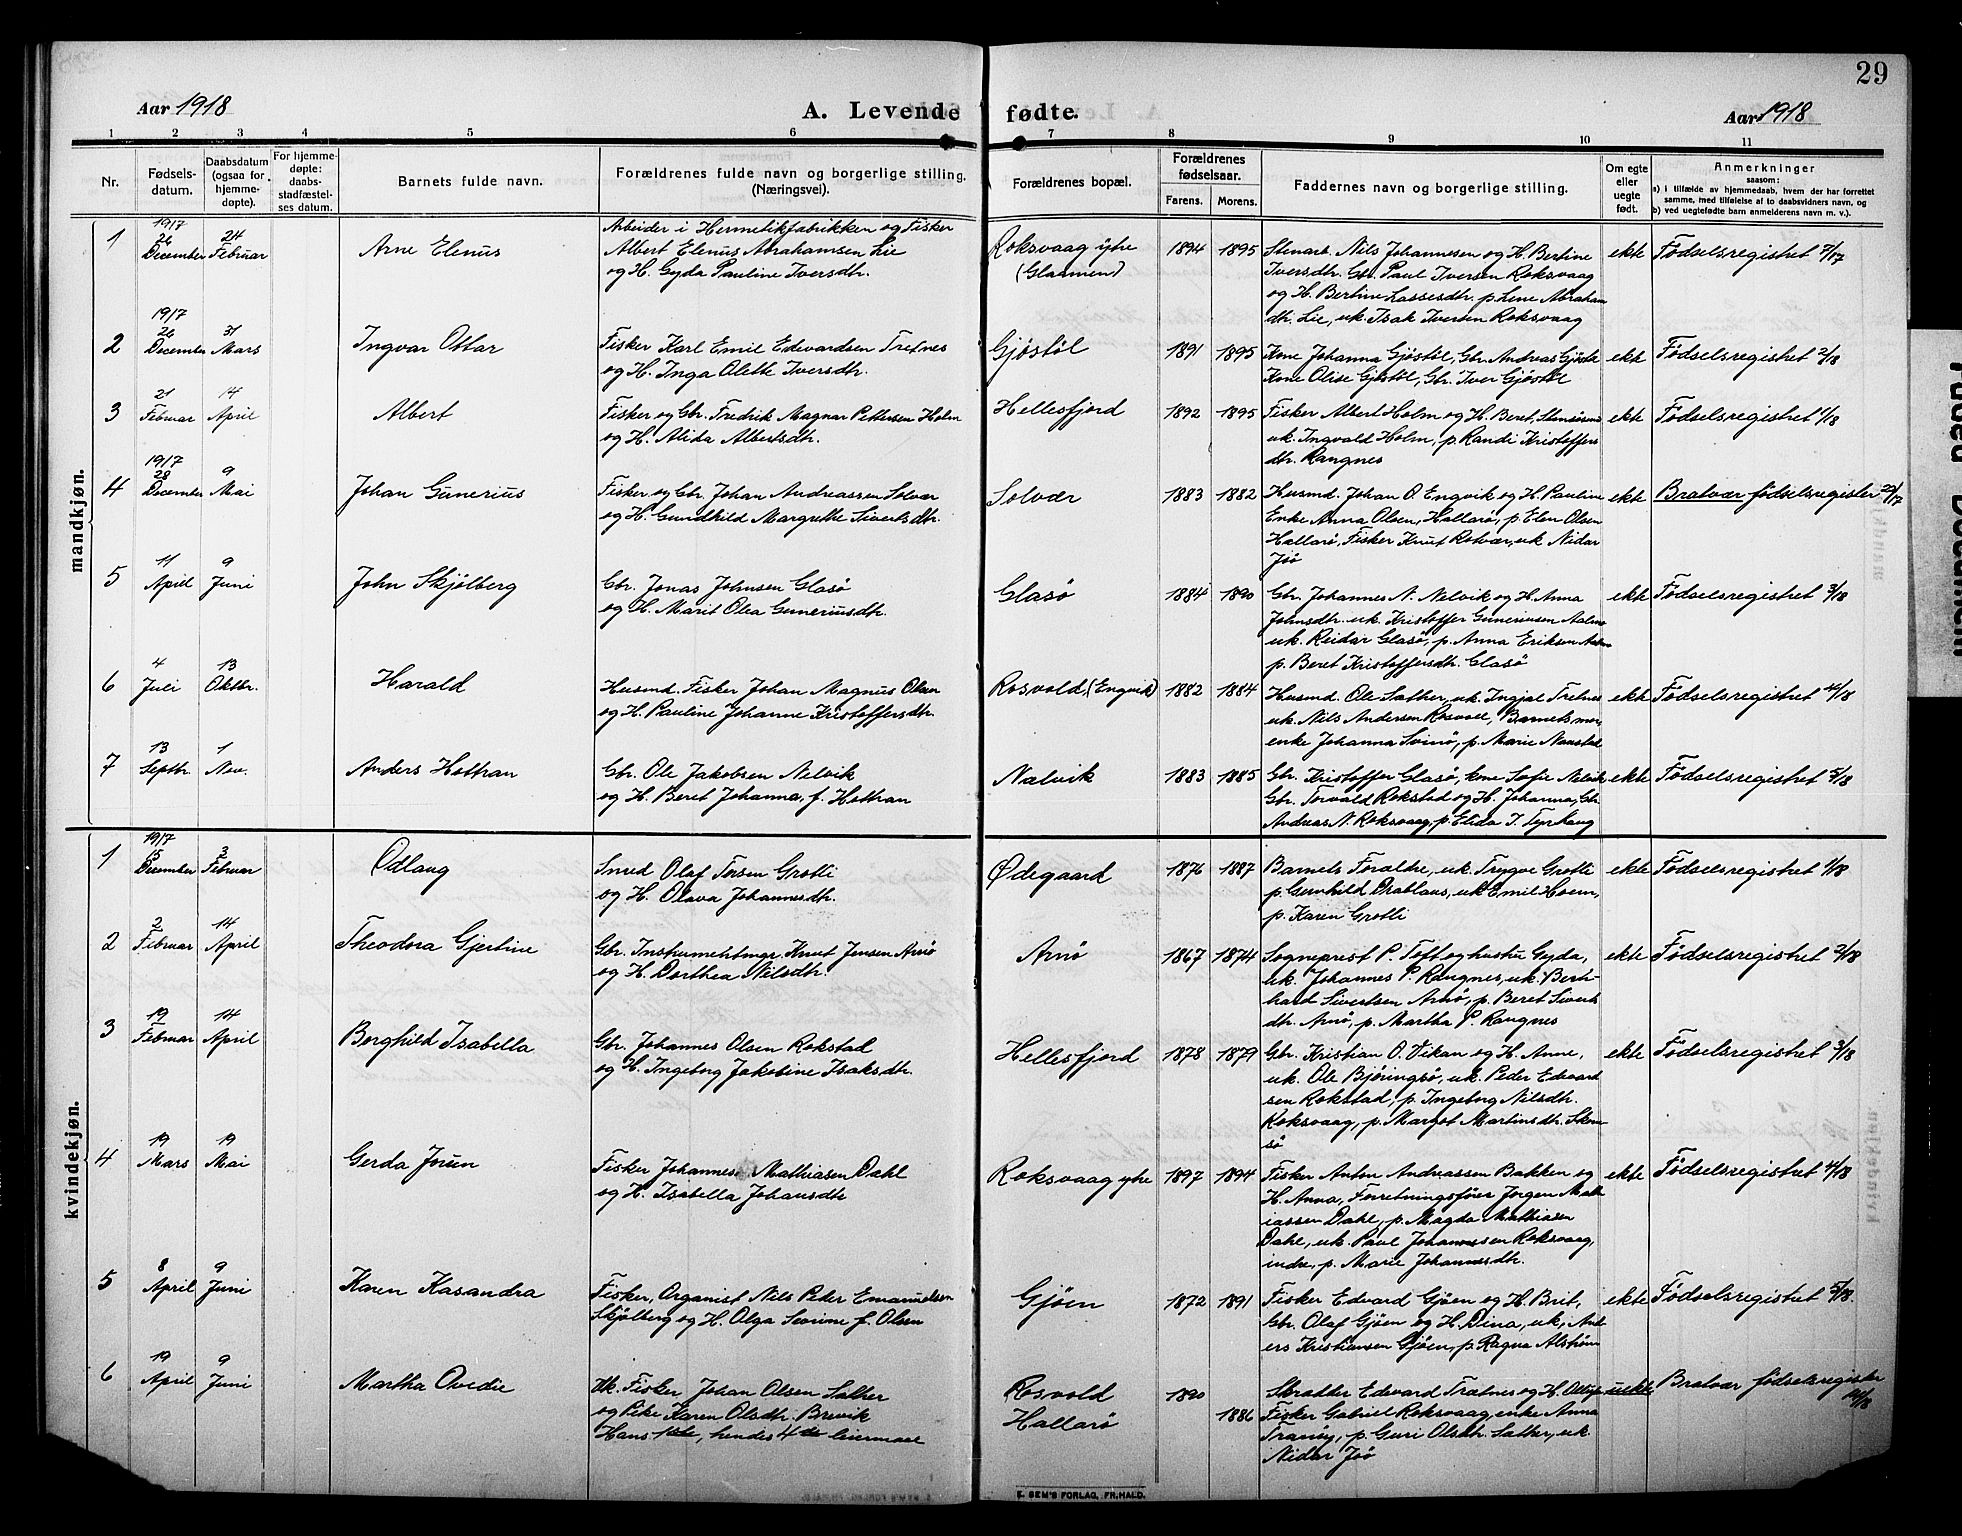 29
Aar 1918
A. Levende fødte.
Aar 1918
1 2 3 4 5 6 7 8 9 10 11
Nr.
Fødsels-
datum.
Daabsdatum
(ogsaa for
hjemme-
døpte).
For hjemme-
døpte:
daabs-
stadfæstel-
ses datum.
Barnets fulde navn.
Forældrenes fulde navn og borgerlige stilling.
(Næringsvei).
Forældrenes bopæl.
Forældrenes
fødselsaar.
Farens. Morens.
Faddernes navn og borgerlige stilling.
Om egte
eller
uegte
født.
Anmerkninger
saasom:
a) i tilfælde av hjemmedaab, hvem der har forrettet
samme, med tilføielse af to daabsvidners navn, og
b) ved uegtefødte barn anmelderens navn m. v.).
mandkjøn.
1
1917
26 December
24 Februar
Arne Elenus
Arbeider i Hermetikfabrikken og Fisker
Albert Elenus Abrahamsen Lie
og H. Gyda Pauline Iversdtr.
Roksvaag ytre
1894 1895
Stenarb. Nils Johannesen og H. Bertine
Iversdtr. Gbr. Paul Iversen Roksvaag
og H. Bertine Lassesdtr. p. Lene Abraham
dtr. Lie, uk. Isak Iversen Roksvaag
ekte
Fødselsregistret 7/17
2
1917
26 December
31 Mars
Ingvar Ottar
Fisker Karl Emil Edevardsen Tretnes
og H. Inga Olette Iversdtr.
Gjøstøl
1891 1895
Kone Johanna Gjøstøl, Gbr. Andreas Gjøstøl
Kone Olise Gjøstøl, Gbr. Iver Gjøstøl
ekte
Fødselsregistret 2/18
3
21 Februar
14 April
Albert
Fisker og Gbr. Fredrik Magnar Pettersen Holm
og H. Alida Albertsdtr.
Hellesfjord
1892 1895
Fisker Albert Holm og H. Beret,
uk. Ingvald Holm, p. Randi Kristoffers
dtr. Rangnes
ekte
Fødselsregistret 1/18
4
1917
28 December
9 Mai
Johan Gunerius
Fisker og Gbr. Johan Andreassen Solvær
og H. Gundhild Margrethe Sivertsdtr.
Solvær
1883 1882
Husmd. Johan O. Engvik og H. Pauline
Enke Anna Olsen, Hallarø, p. Elen Olsen
Hallarø, Fisker Knut Rotvær, uk. Nidar
Jø
ekte
Bratvær fødselsregister 22/17
5
11 April
9 Juni
John Skjølberg
Gbr. Jonas Johnsen Glasø
og H. Marit Olea Guneriusdtr.
Glasø
1884 1890
Gbr. Johannes N. Nelvik og H. Anna
Johnsdtr. uk. Kristoffer Guneriusen
uk. Reidar Glasø, p. Anna Eriksen
p. Beret Kristoffersdtr. Glasø
ekte
Fødselsregistret 3/18
6
4 Juli
13 Oktbr.
Harald
Husmd. Fisker Johan Magnus Olsen
og H. Pauline Johanne Kristoffersdtr.
Rosvold (Engvik)
1882 1884
Husmd. Ole Sæther, uk. Ingjal Tretnes
uk. Nils Andersen Rosvoll, Barnets mor,
enke Johanna Svinø, p. Marie Naustad
ekte
Fødselsregistret 4/18
7
13 Septbr.
1 Nov.
Anders Hottran
Gbr. Ole Jakobsen Nelvik
og H. Beret Johanna, f. Hottran
Nalvik
1883 1885
Gbr. Kristoffer Glasø, kone Sofie Nelvik
Gbr. Torvald Rokstad og H. Johanna, Gbr.
Andreas N. Roksvaag, p. Elida I. Tyrhaug
ekte
Fødselsregistret 5/18
kvindekjøn.
1
1917
15 December
3 Februar
Odlaug
Smed Olaf Torsen Grotli
og H. Olava Johannesdtr.
Ødegaard
1876 1887
Barnets Forældre, uk. Trygve Grotli
p. Gunhild Drablaus, uk Emil Hoem,
p. Karen Grotli
ekte
Fødselsregistret 1/18
2
2 Februar
14 April
Theodora Gjertine
Gbr. Instrumentmgr. Knut Jensen Arnø
og H. Dorthea Nilsdtr.
Arnø
1867 1874
Sogneprest P. Toft og hustru Gyda,
uk. Johannes P. Rangnes, uk. Bern-
hard Sivertsen Arnø, p. Beret Siverts
dtr. Arnø, p. Martha P. Rangnes
ekte
Fødselsregistret 2/18
3
19 Februar
14 April
Borghild Isabella
Gbr. Johannes Olsen Rokstad
og H. Ingeborg Jakobine Isaksdtr.
Hellesfjord
1878 1879
Gbr. Kristian O. Vikan og H. Anne,
uk. Ole Bjøringsø, uk. Peder Edvard
sen Rokstad, p. Ingeborg Nilsdtr.
Roksvaag, p. Margot Martinsdtr. Skom
sø
ekte
Fødselsregistret 3/18
4
19 Mars
19 Mai
Gerda Jorun
Fisker Johannes Mathiasen Dahl
og H. Isabella Johansdtr
Roksvaag ytre
1897 1894
Fisker Anton Andreassen Bakken og
H. Anna, Forretningsfører Jørgen Mat
iassen Dahl, p. Magda Mathiasen
Dahl, uk. Paul Johannessen Roksvaag,
indre, p. Marie Johannesdtr.
ekte
Fødselsregistret 4/18
5
8 April
9 Juni
Karen Kasandra
Fisker, Organist Nils Peder Emanuelsen
Skjølberg og H. Olga Sevrine f. Olsen
Gjøen
1872 1891
Fisker Edvard Gjøen og H. Brit,
Gbr. Olaf Gjøen og H. Dina, uk. And
ers Kristiansen Gjøen, p. Ragna Alstrøm
ekte
Fødselsregistret 5/18.
6
19 April
9 Juni
Martha Ovedie
Uk. Fisker Johan Olsen Sæther
og Pike Karen Olsdtr. Brevik
Hans 1ste, hendes 4de leiermaal
Rosvold
Hallarø
1890
1886
Skrædder Edvard Trætnes og H.
Fisker Gabriel Roksvaag, enke Anna
p. Guri Olsdtr. Sæther, uk.
Nidar Jøø
uekte
Bratvær fødselsregister
14/18
E. SEM'S FORLAG, FR.HALD.